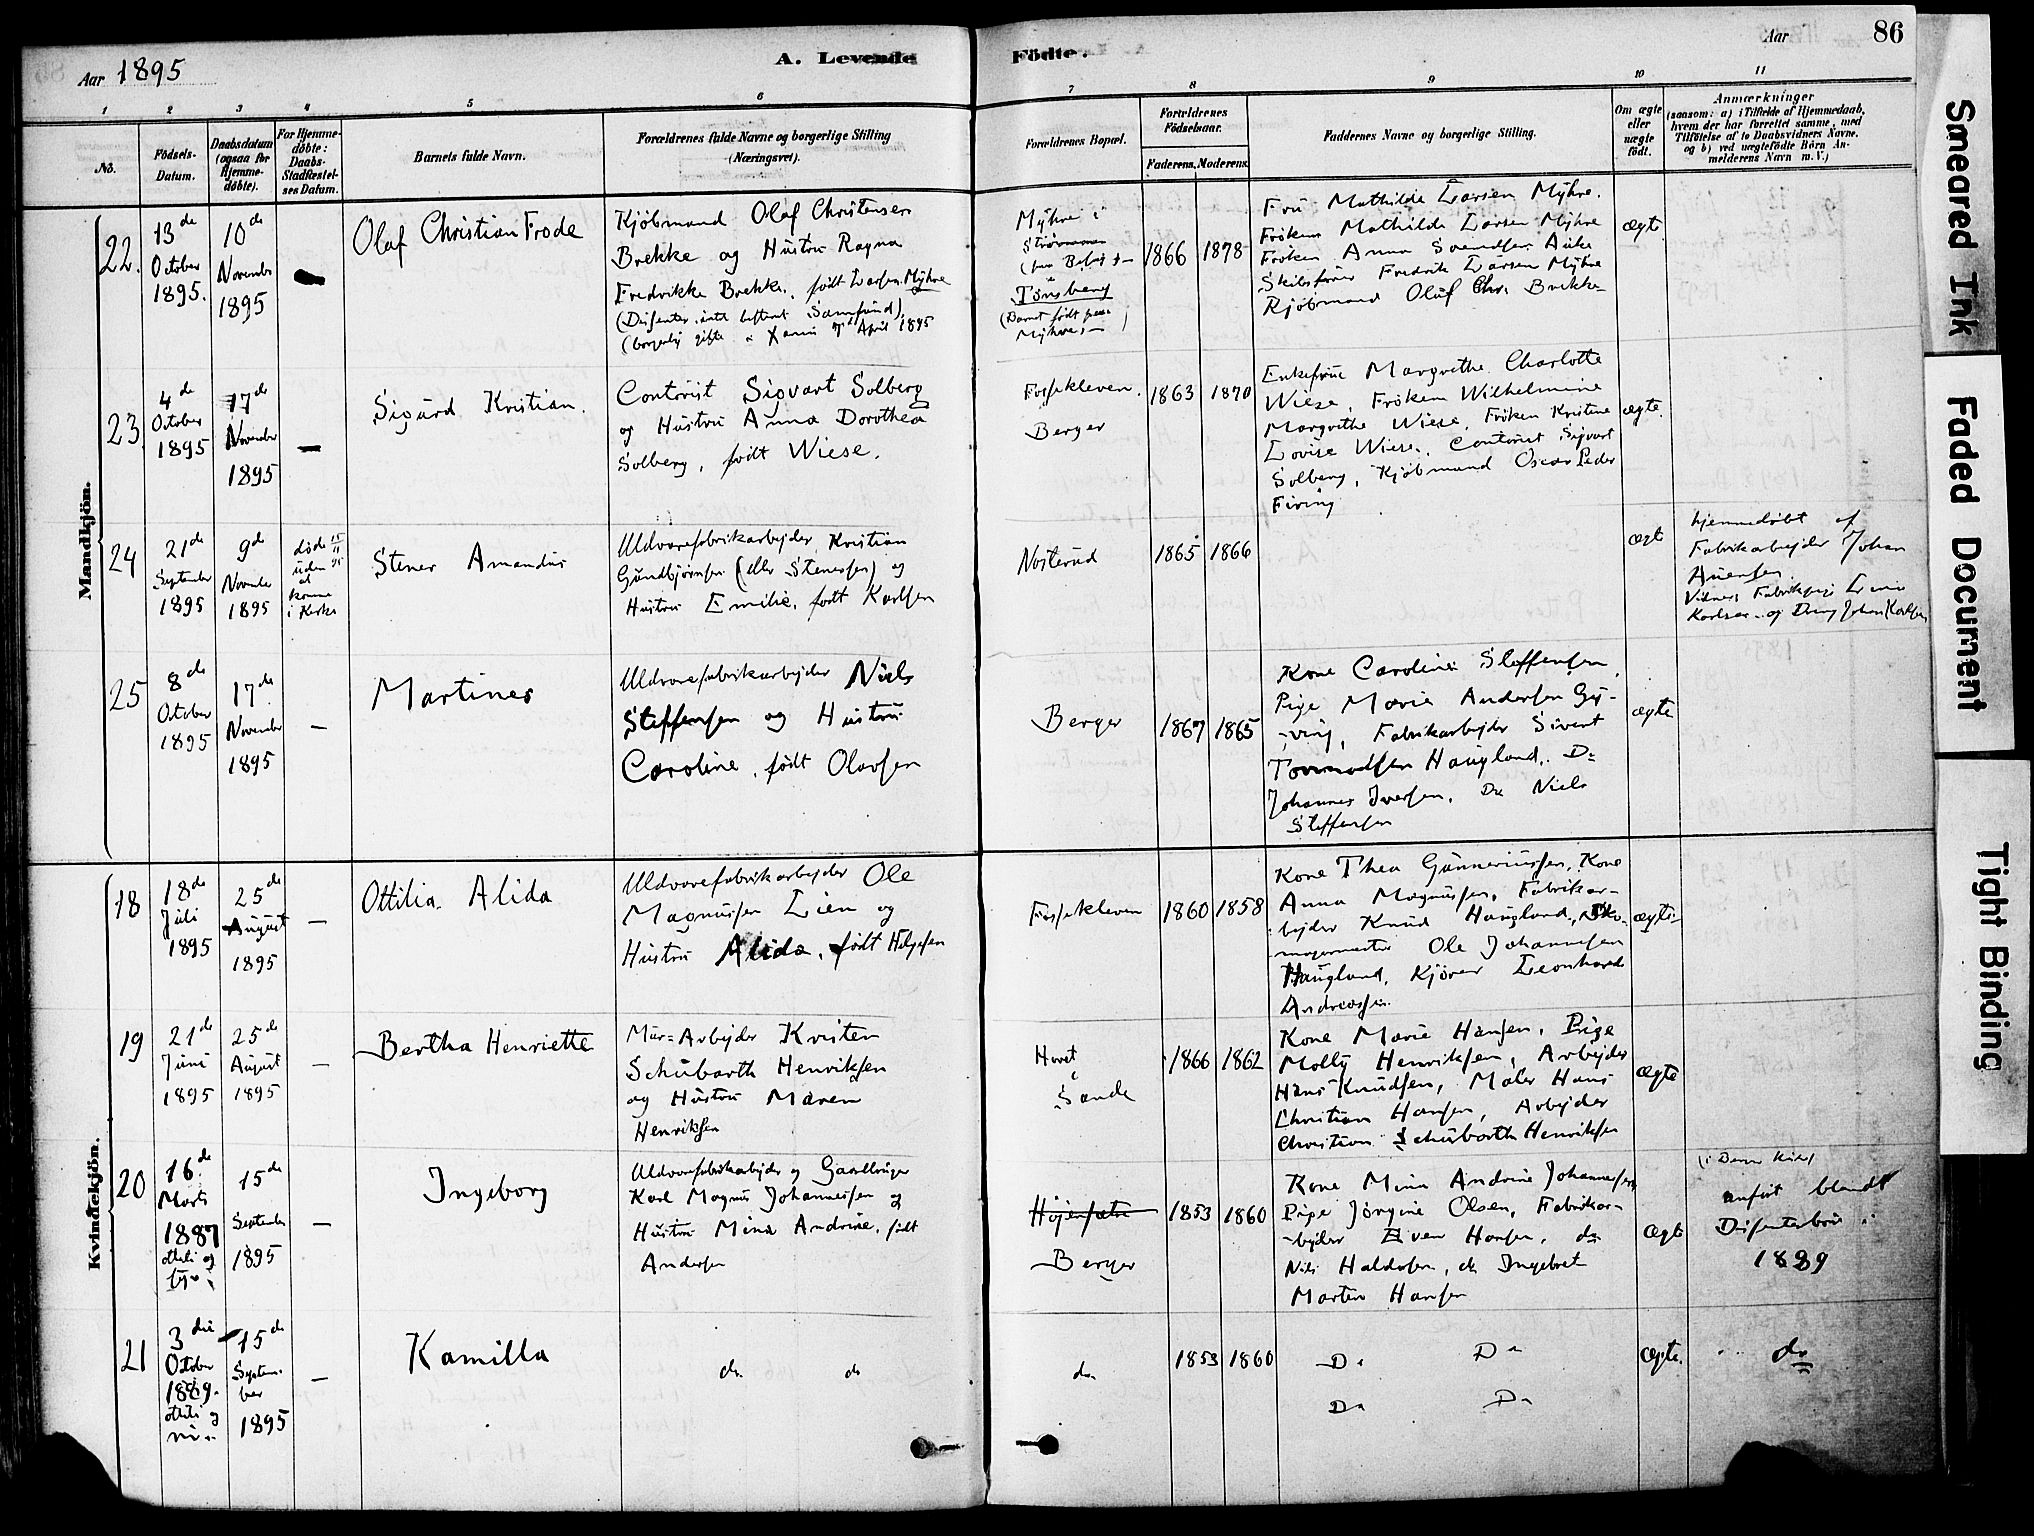 Aar 1895
A. Levende
Födte.
Aar
86
1
2
3
4
5
6
7
8
9
10
11
No.
Födsels-
Datum.
Daabsdatum
(ogsaa for
Hjemme-
döbte).
For Hjemme-
döbte:
Daabs-
Stadfæstel-
ses Datum.
Barnets fulde Navn.
Forældrenes fulde Navne og borgerlige Stilling
(Næringsvei).
Forældrenes Bopæl.
Forældrenes
Födselsaar.
Faderens.
Moderens.
Faddernes Navne og borgerlige Stilling.
Om ægte
eller
uægte
födt.
Anmærkninger
(saasom: a) i Tilfælde af Hjemmedaab,
hvem der har forrettet samme, med
Tilföielse af to Daabsvidners Navne,
og b) ved uægtefödte Börn An-
melderens Navn m. V.)
Mandkjön.
22.
13de
October
1895.
10de
November
1895
Olaf Christian Frode
Kjøbmand Olaf Christensen
Brekke og Hustru Ragna
Fredrikke Brekke, født Larsen Myhre
(Dissenter, Samfund),
(borgerlig gifte 7de April 1895
Myhre i
Strømmen
Tönsberg
(Barnet født paa
Myhre)
1866
1878
Fru Mathilde Larsen Myhre.
Frøken Mathilde Larsen Myhre
Frøken Anna Svendsen Auke
Skibsfører Fredrik Larsen Myhre
Kjøbmand Olaf Chr. Brekke
ægt
23.
4de
October
1895
17de
November
1895
—
Sigurd Kristian.
Contorist Sigvart Solberg
og Hustru Anna Dorothea
Solberg, født Wiese.
Fossekleven.
Berger
1863
1870
Enkefrue Margrethe Charlotte
Wiese, Frøken Wilhelmine
Margrethe Wiese, Frøken Kristine
Lovise Wiese, Contorist Sigvart
Solberg, Kjøbmand Oscar Peder
Firing
ægte.
24
21de
September
1895
9de
November
1895
døde 15/11 95
uden
at
komme
i Kirke
Stener Amandus
Uldvarefabrikarbejder Kristian
Gundbjørnsen (eller Stenersen) og
Hustru Emilie, født Karlsen
Nosterud
1865
1866
ægt
hjemmedøbt af
Fabrikarbejder Johan
Auensen
Vidner, Fabrikpige Lina
Karlsen og Dreng Johan Karlsen
25
8de
October
1895
17de
November
1895
—
Martines
Uldvarefabrikarbejder Niels
Steffensen og Hustru
Caroline, født Olavsen
Berger
1867
1865
Kone Caroline Steffensen,
Pige Marie Andersen Gy-
ving, Fabrikarbejder Sivert
Tormodsen Haugland, Do
Johannes Iversen, Do Niels
Steffensen
ægte
Kvindekjön.
18
18de
Juli
1895
25de
August
1895
—
Ottilia Alida
Uldvarefabrikarbejder Ole
Magnussen Lien og
Hustru Alida, født Helgesen
Fossekleven
1860
1858
Kone Thea Gunneriussen, Kone
Anna Magnussen, Fabrikar-
bejder Knud Haugland, Sko-
magermester Ole Johannesen
Haugland, Kjører Leonhard
Andreassen.
ægte
19
21de
Juni
1895
25de
August
1895
—
Bertha Henriette
Mur=Arbejder Kristen
Schubarth Henriksen
og Hustru Maren
Henriksen
Hovet
i
Sande
1866
1862
Kone Marie Hansen, Pige
Molly Henriksen, Arbejder
Hans Knudsen, Maler Hans
Christian Hansen, Arbejder
Christian Schubarth Henriksen
ægte
20
16de
Marts
1887
otteti og
syv
15de
September
1895
—
Ingeborg
Uldvarefabrikarbejder og Gaardbruger
Karl Magnus Johannessen og
Hustru Mina Andrine, født
Andersen
Højensætre
Berger
1853
1860
Kone Mina Andrine Johannessen,
Pige Jørgine Olsen, Fabrikar-
bejder Even Hansen, do
Nils Haldosen, do Ingebret
Martin Hansen
ægte
anført blandt
Dissenterbørn i
1889
21
3die
October
1889.
otteti og
ni
15de
Septem-
ber
1895
—
Kamilla
do do
do
1853
1860
Do Do
Do Do
ægte.
do
Smeared Ink
Faded Document
Tight Binding